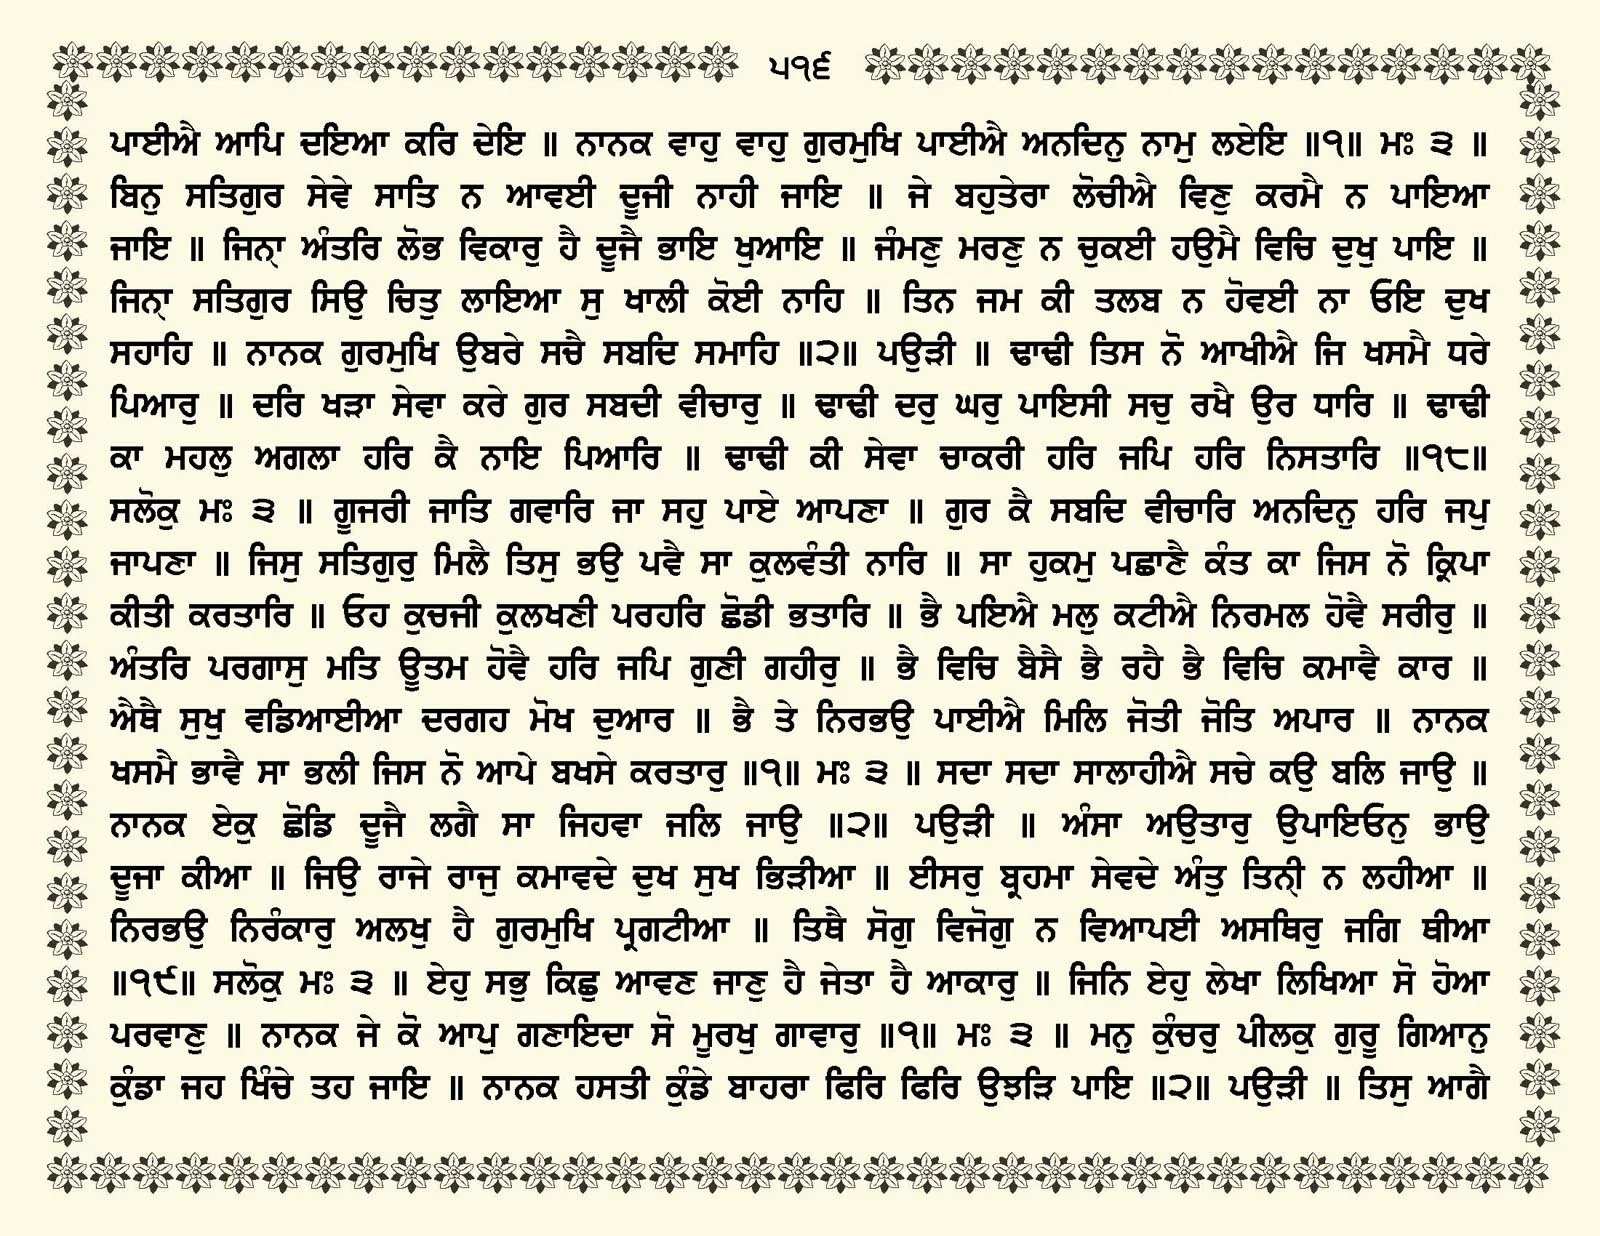 ੫੧੬
ਪਾਈਐ ਆਪਿ ਦਇਆ ਕਰਿ ਦੇਇ ॥ ਨਾਨਕ ਵਾਹੁ ਵਾਹੁ ਗੁਰਮੁਖਿ ਪਾਈਐ ਅਨਦਿਨੁ ਨਾਮੁ ਲਏਇ ॥੧॥ ਮਃ ੩ ॥
ਬਿਨੁ ਸਤਿਗੁਰ ਸੇਵੇ ਸਾਤਿ ਨ ਆਵਈ ਦੂਜੀ ਨਾਹੀ ਜਾਇ ॥ ਜੇ ਬਹੁਤੇਰਾ ਲੋਚੀਐ ਵਿਣੁ ਕਰਮੈ ਨ ਪਾਇਆ
ਜਾਇ ॥ ਜਿਨ੍ਹਾ ਅੰਤਰਿ ਲੋਭ ਵਿਕਾਰੁ ਹੈ ਦੂਜੈ ਭਾਇ ਖੁਆਇ ॥ ਜੰਮਣੁ ਮਰਣੁ ਨ ਚੁਕਈ ਹਉਮੈ ਵਿਚਿ ਦੁਖੁ ਪਾਇ ॥
ਜਿਨ੍ਹਾ ਸਤਿਗੁਰ ਸਿਉ ਚਿਤੁ ਲਾਇਆ ਸੁ ਖਾਲੀ ਕੋਈ ਨਾਹਿ ॥ ਤਿਨ ਜਮ ਕੀ ਤਲਬ ਨ ਹੋਵਈ ਨਾ ਓਇ ਦੁਖ
ਸਹਾਹਿ ॥ ਨਾਨਕ ਗੁਰਮੁਖਿ ਉਬਰੇ ਸਚੈ ਸਬਦਿ ਸਮਾਹਿ ॥੨॥ ਪਉੜੀ ॥ ਢਾਢੀ ਤਿਸ ਨੋ ਆਖੀਐ ਜਿ ਖਸਮੈ ਧਰੇ
ਪਿਆਰੁ ॥ ਦਰਿ ਖੜਾ ਸੇਵਾ ਕਰੇ ਗੁਰ ਸਬਦੀ ਵੀਚਾਰੁ ॥ ਢਾਢੀ ਦਰੁ ਘਰੁ ਪਾਇਸੀ ਸਚੁ ਰਖੈ ਉਰ ਧਾਰਿ ॥ ਢਾਢੀ
ਕਾ ਮਹਲੁ ਅਗਲਾ ਹਰਿ ਕੈ ਨਾਇ ਪਿਆਰਿ ॥ ਢਾਢੀ ਕੀ ਸੇਵਾ ਚਾਕਰੀ ਹਰਿ ਜਪਿ ਹਰਿ ਨਿਸਤਾਰਿ ॥੧੮॥
ਸਲੋਕੁ ਮਃ ੩ ॥ ਗੂਜਰੀ ਜਾਤਿ ਗਵਾਰਿ ਜਾ ਸਹੁ ਪਾਏ ਆਪਣਾ ॥ ਗੁਰ ਕੈ ਸਬਦਿ ਵੀਚਾਰਿ ਅਨਦਿਨੁ ਹਰਿ ਜਪੁ
ਜਾਪਣਾ ॥ ਜਿਸੁ ਸਤਿਗੁਰੁ ਮਿਲੈ ਤਿਸੁ ਭਉ ਪਵੈ ਸਾ ਕੁਲਵੰਤੀ ਨਾਰਿ ॥ ਸਾ ਹੁਕਮੁ ਪਛਾਣੈ ਕੰਤ ਕਾ ਜਿਸ ਨੋ ਕ੍ਰਿਪਾ
ਕੀਤੀ ਕਰਤਾਰਿ ॥ ਓਹ ਕੁਚਜੀ ਕੁਲਖਣੀ ਪਰਹਰਿ ਛੋਡੀ ਭਤਾਰਿ ॥ ਭੈ ਪਇਐ ਮਲੁ ਕਟੀਐ ਨਿਰਮਲ ਹੋਵੈ ਸਰੀਰੁ ॥
ਅੰਤਰਿ ਪਰਗਾਸੁ ਮਤਿ ਊਤਮ ਹੋਵੈ ਹਰਿ ਜਪਿ ਗੁਣੀ ਗਹੀਰੁ ॥ ਭੈ ਵਿਚਿ ਬੈਸੈ ਭੈ ਰਹੈ ਭੈ ਵਿਚਿ ਕਮਾਵੈ ਕਾਰ ॥
ਐਥੈ ਸੁਖੁ ਵਡਿਆਈਆ ਦਰਗਹ ਮੋਖ ਦੁਆਰ ॥ ਭੈ ਤੇ ਨਿਰਭਉ ਪਾਈਐ ਮਿਲਿ ਜੋਤੀ ਜੋਤਿ ਅਪਾਰ ॥ ਨਾਨਕ
ਖਸਮੈ ਭਾਵੈ ਸਾ ਭਲੀ ਜਿਸ ਨੋ ਆਪੇ ਬਖਸੇ ਕਰਤਾਰੁ ॥੧॥ ਮਃ ੩ ॥ ਸਦਾ ਸਦਾ ਸਾਲਾਹੀਐ ਸਚੇ ਕਉ ਬਲਿ ਜਾਉ ॥
ਨਾਨਕ ਏਕੁ ਛੋਡਿ ਦੂਜੈ ਲਗੈ ਸਾ ਜਿਹਵਾ ਜਲਿ ਜਾਉ ॥੨॥ ਪਉੜੀ ॥ ਅੰਸਾ ਅਉਤਾਰੁ ਉਪਾਇਓਨੁ ਭਾਉ
ਦੂਜਾ ਕੀਆ ॥ ਜਿਉ ਰਾਜੇ ਰਾਜੁ ਕਮਾਵਦੇ ਦੁਖ ਸੁਖ ਭਿੜੀਆ ॥ ਈਸਰੁ ਬ੍ਰਹਮਾ ਸੇਵਦੇ ਅੰਤੁ ਤਿਨ੍ਹੀ ਨ ਲਹੀਆ ॥
ਨਿਰਭਉ ਨਿਰੰਕਾਰੁ ਅਲਖੁ ਹੈ ਗੁਰਮੁਖਿ ਪ੍ਰਗਟੀਆ ॥ ਤਿਥੈ ਸੋਗੁ ਵਿਜੋਗੁ ਨ ਵਿਆਪਈ ਅਸਥਿਰੁ ਜਗਿ ਥੀਆ
॥੧੯॥ ਸਲੋਕੁ ਮਃ ੩ ॥ ਏਹੁ ਸਭੁ ਕਿਛੁ ਆਵਣ ਜਾਣੁ ਹੈ ਜੇਤਾ ਹੈ ਆਕਾਰੁ ॥ ਜਿਨਿ ਏਹੁ ਲੇਖਾ ਲਿਖਿਆ ਸੋ ਹੋਆ
ਪਰਵਾਣੁ ॥ ਨਾਨਕ ਜੇ ਕੋ ਆਪੁ ਗਣਾਇਦਾ ਸੋ ਮੂਰਖੁ ਗਾਵਾਰੁ ॥੧॥ ਮਃ ੩ ॥ ਮਨੁ ਕੁੰਚਰੁ ਪੀਲਕੁ ਗੁਰੂ ਗਿਆਨੁ
ਕੁੰਡਾ ਜਹ ਖਿੰਚੇ ਤਹ ਜਾਇ ॥ ਨਾਨਕ ਹਸਤੀ ਕੁੰਡੇ ਬਾਹਰਾ ਫਿਰਿ ਫਿਰਿ ਉਝੜਿ ਪਾਇ ॥੨॥ ਪਉੜੀ ॥ ਤਿਸੁ ਆਗੈ